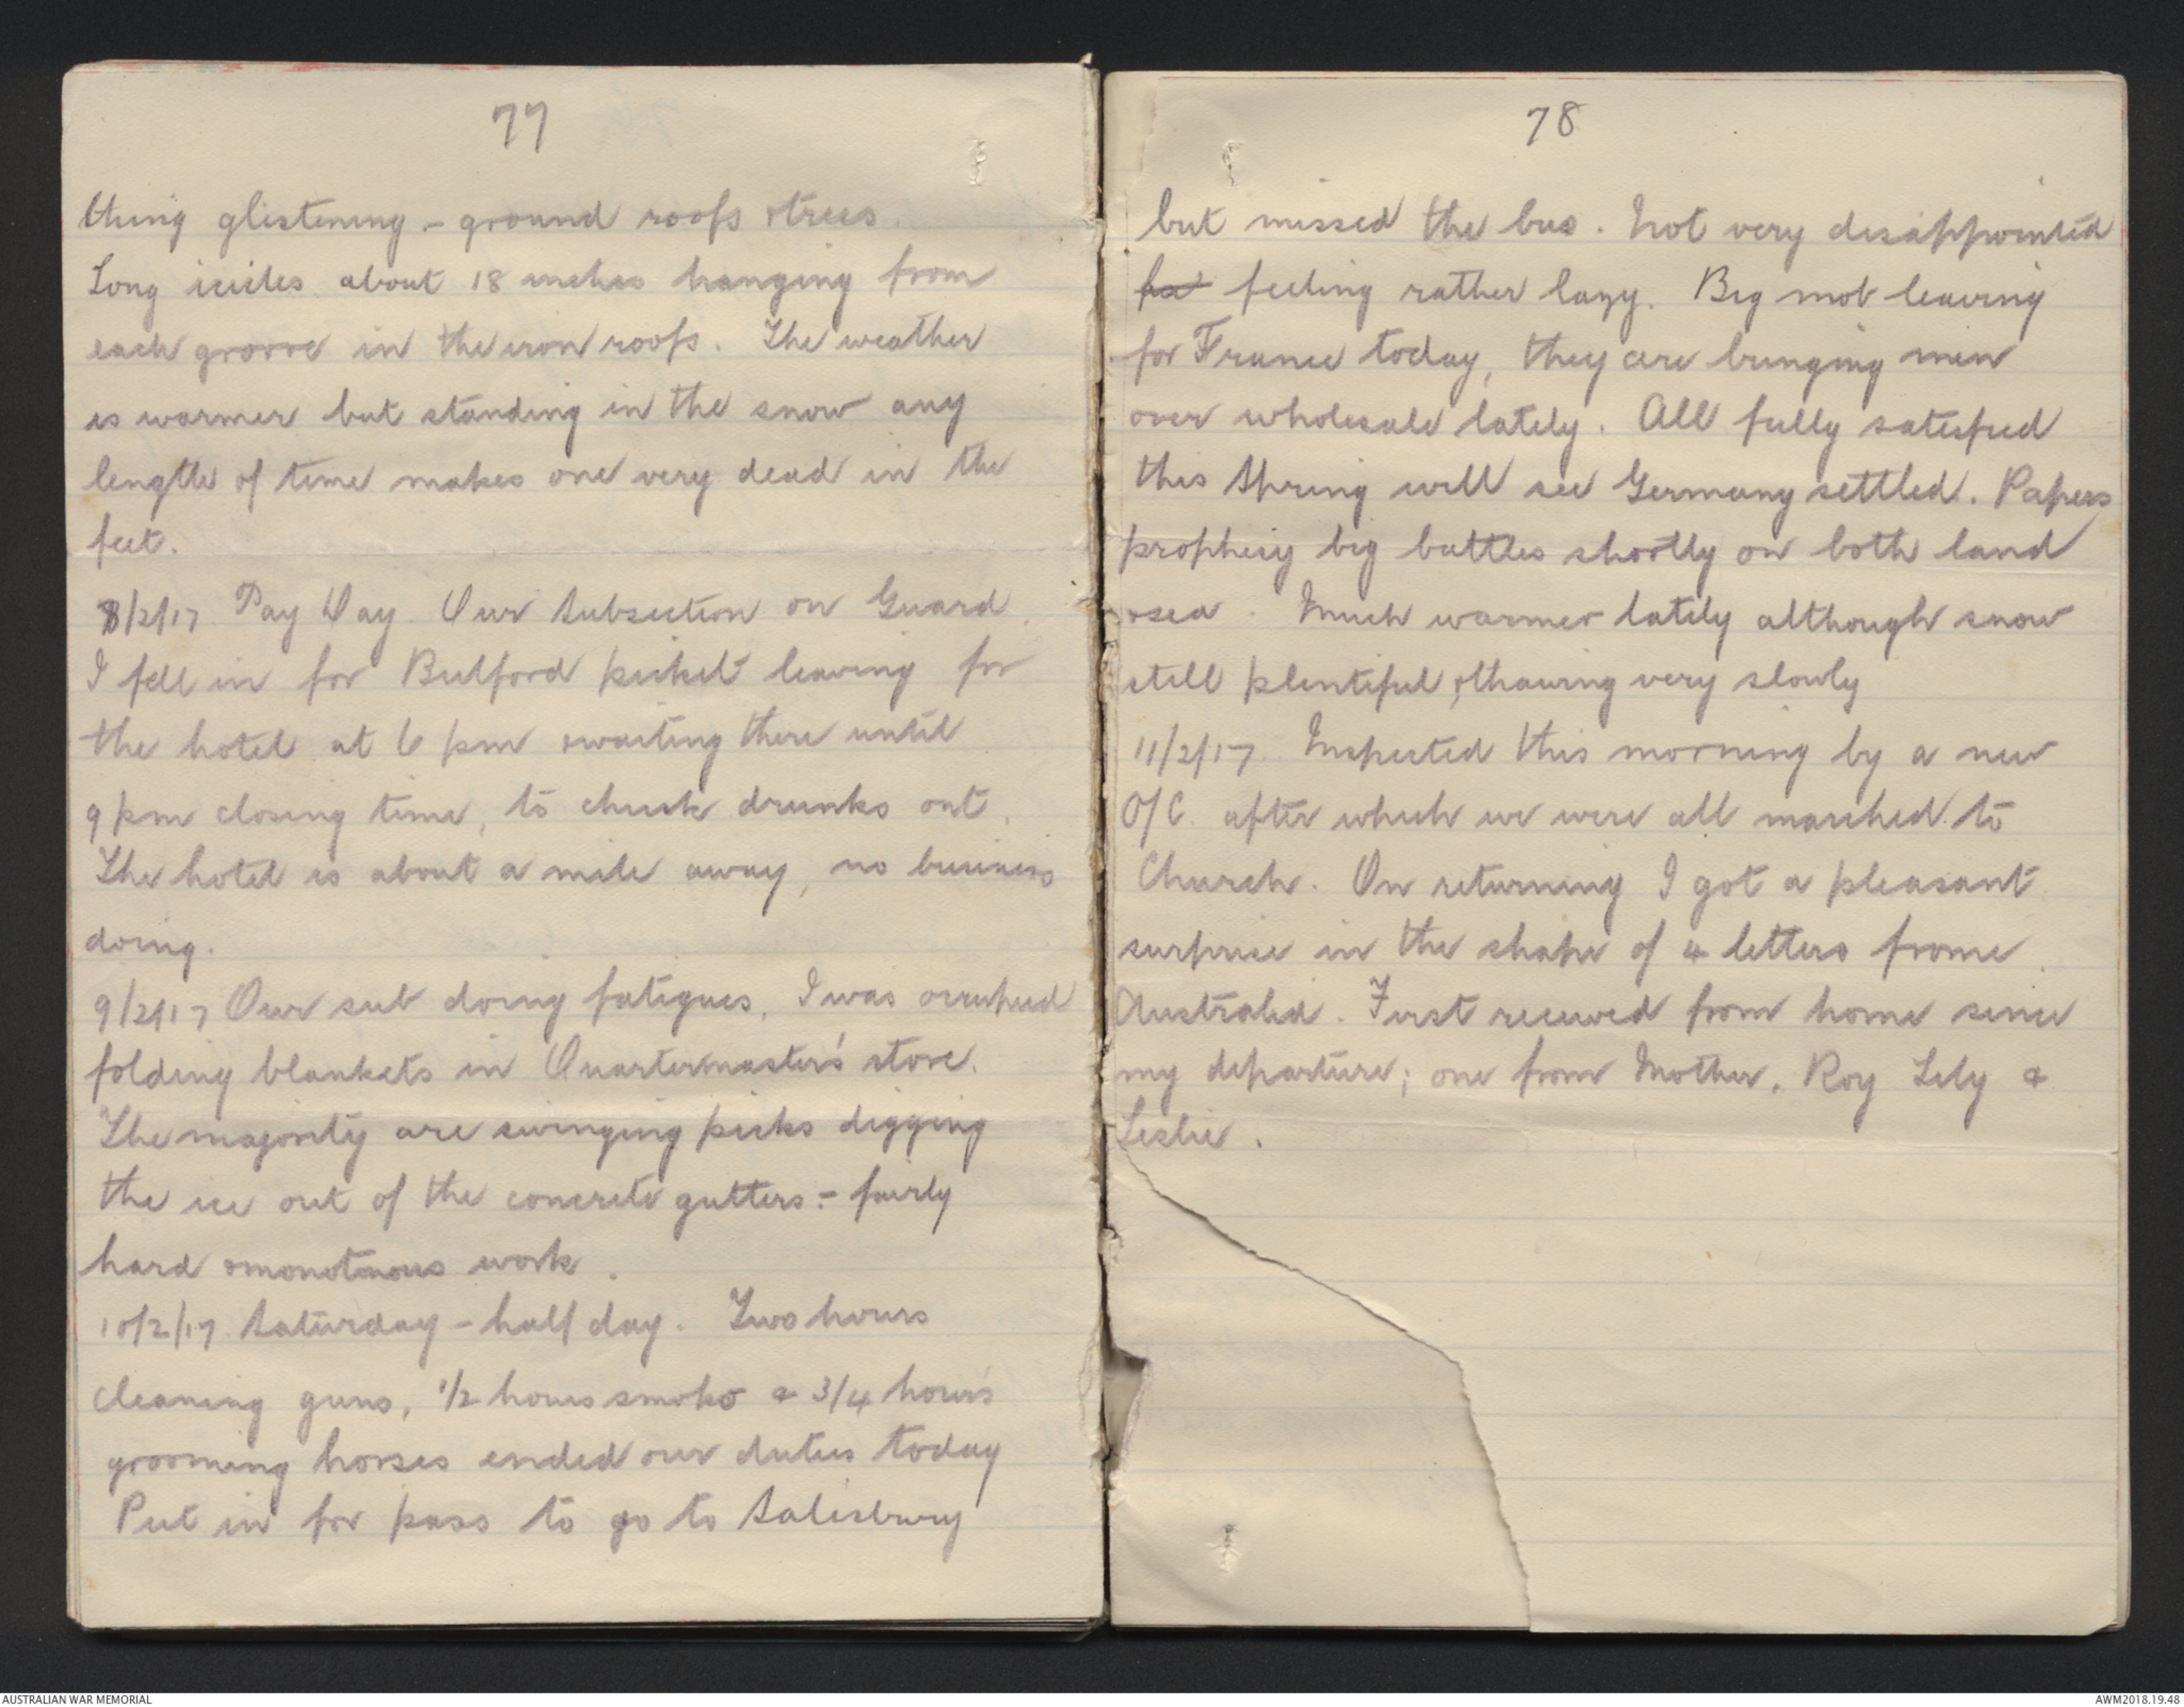 77
thing glistening - ground roofs & trees.
Long icicles about 18 inches hanging from
each groove in the iron roofs. The weather
is warmer but standing in the snow any
length of time makes one very dead in the
feet.
8/2/17 Pay Day. Our Subsection on Guard.
I fell in for Bulford picket leaving for
the hotel at 6 pm & waiting there until
9 pm closing time, to chuck drunks out.
The hotel is about a mile away, no business
doing.
9/2/17 Our sub doing fatigues. I was occupied
folding blankets in Quartermaster's store.
The majority are swinging picks digging
the ice out of the concrete gutters:- fairly
hard & monotonous work.
10/2/17 Saturday - half day. Two hours
cleaning guns, 1/2 hours smoko & 3/4 hour's
grooming horses ended our duties today
Put in for pass to go to Salisbury
78
but missed the bus. Not very disappointed
feeling rather lazy. Big mob leaving
for France today, they are bringing men
over wholesale lately. All fully satisfied
this Spring will see Germany settled. Papers
prophecy big battles shortly on both land
& sea. Much warmer lately although snow
still plentiful, & thawing very slowly
11/2/17 Inspected this morning by a new
O/C. after which we were all marched to
Church. On returning I got a pleasant
surprise in the shape of 4 letters frome
Australia. First received from home since
my departure; one from Mother, Roy Lily &
Leslie.
AUSTRALIAN WAR MEMORIAL
AWM2018.19.48